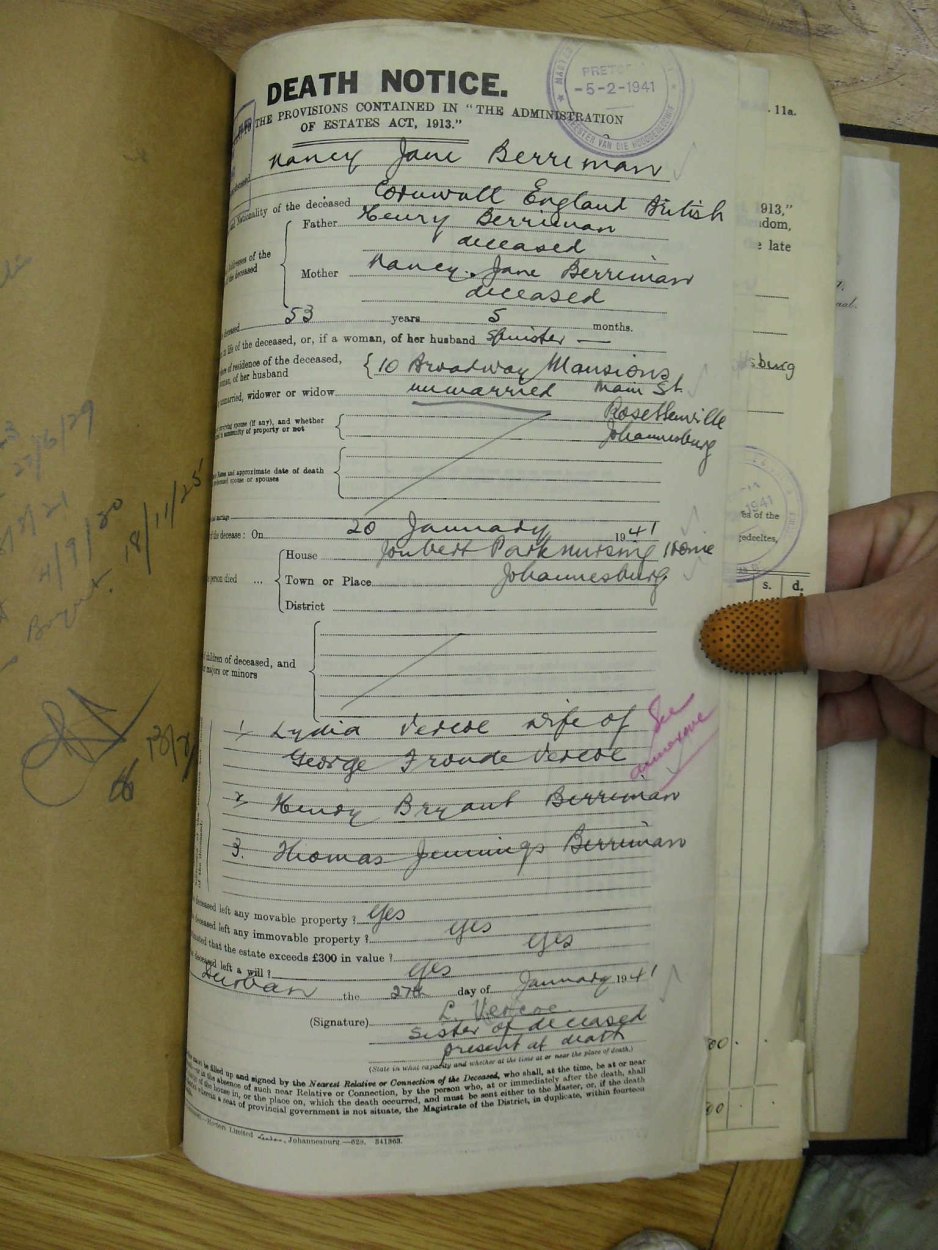 DEATH NOTICE.
PRETO
-5-2-1941
THE PROVISIONS CONTAINED IN "THE ADMINISTRATION
OF ESTATES ACT, 1913."
11a.
Nancy Jane Berriman
Nationality of the deceased Cornwall England British
Father Henry Berriman
deceased
of the
deceased
Mother Nancy Jane Berriman
deceased
53 years 5 months.
in life of the deceased, or, if a woman, of her husband Spinster —
of residence of the deceased,
of her husband
{10 Broadway Mansions
unmarried, widower or widow unmarried Main St
Rosettenville
Johannesburg
spouse (if any), and whether
in community of property or not
Name and approximate date of death
spouse or spouses
the decease: On 20 January 1941
person died ... House Joubert Park nursing Home
Town or Place Johannesburg
District
children of deceased, and
majors or minors
1, Lydia Vercoe wife of
George Froude Vercoe
See
annexure
2, Henry Bryant Berriman
3. Thomas Jennings Berriman
deceased left any movable property? Yes
deceased left any immovable property? Yes
that the estate exceeds £300 in value? Yes
deceased left a will? Yes
Durban the 27th day of January 1941
(Signature) L. Vercoe
Sister of deceased
present at death
(State in what capacity and whether at the time at or near the place of death.)
must be filled up and signed by the Nearest Relative or Connection of the Deceased, who shall, at the time, be at or near
the absence of such near Relative or Connection, by the person who, at or immediately after the death, shall
of the house in, or the place on, which the death occurred, and must be sent either to the Master, or, if the death
a seat of provincial government is not situate, the Magistrate of the District, in duplicate, within fourteen
Limited Johannesburg.—629. 341363.
1913,"
the late
sburg
of the
s. d.
27/6/29
4/9/30
18/11/25